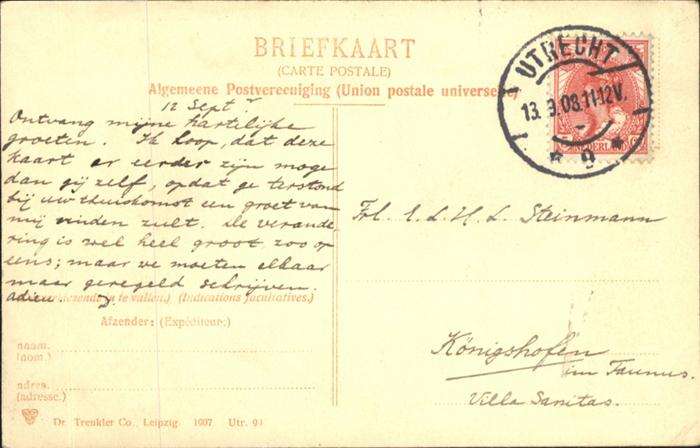 BRIEFKAART
(CARTE POSTALE)
Algemeene Postvereeniging (Union postale universelle)
UTRECHT
13. 3. 08. 11-12V.
* 9 *
NEDERLAND
12 Sept
Ontvang mijne hartelijke
groeten. Ik hoop, dat deze
kaart er eerder zijn moge
dan gij zelf, opdat ge terstond
bij uw thuiskomst een groet van
mij vinden zult. De verande-
ring is wel heel groot zoo op
eens; maar we moeten elkaar
maar geregeld schrijven.
adieu. J.
in te vullen.) (Indications facultatives.)
Afzender: (Expéditeur:)
naam.
(nom.)
adres.
(adresse.)
Dr. Trenkler Co., Leipzig. 1907 Utr. 94
Frl. E. L. H. L. Steinmann
Königshofen
im Taunus.
Villa Sanitas.